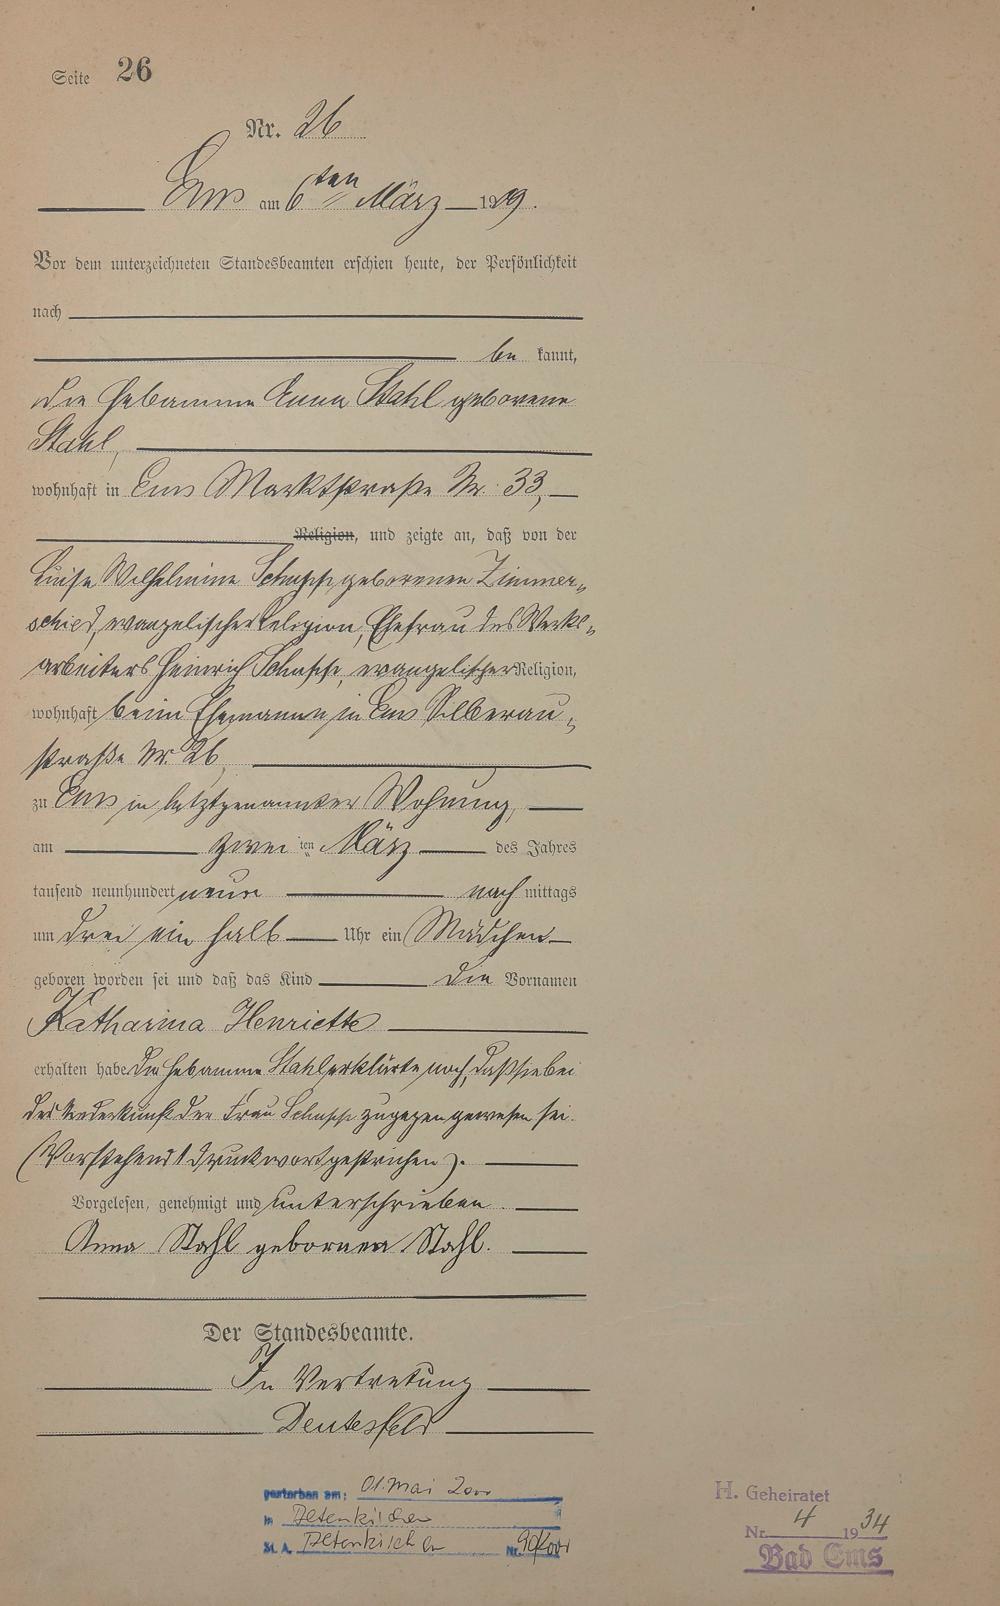 Seite 26
Nr. 26
Ems am 6ten März 1909.
Vor dem unterzeichneten Standesbeamten erschien heute, der Persönlichkeit
nach
be kannt,
die Hebamme Anna Stahl geborene
Stahl,
wohnhaft in Ems Marktstraße Nr. 33,
Religion, und zeigte an, daß von der
Luise Wilhelmine Schupp geborenen Zimmer-
schied, evangelischer Religion, Ehefrau des Werks-
arbeiters Heinrich Schupp, evangelischer Religion,
wohnhaft beim Ehemanne in Ems Silberau-
straße Nr. 26
zu Ems in letztgenannter Wohnung,
am zwei ten März des Jahres
tausend neunhundert neun nach mittags
um drei ein halb Uhr ein Mädchen
geboren worden sei und daß das Kind die Vornamen
Katharina Henriette
erhalten habe. Die Hebamme Stahl erklärte noch, daß sie bei
der Niederkunft der Frau Schupp zugegen gewesen sei.
(Vorstehend 1 Druckwort gestrichen).
Vorgelesen, genehmigt und unterschrieben.
Anna Stahl geborenen Stahl.
Der Standesbeamte.
In Vertretung
gestorben am: 01. Mai 2001
in Altenkirchen
St. A. Altenkirchen Nr. 90/2001
H. Geheiratet
Nr. 4 1934
Bad Ems